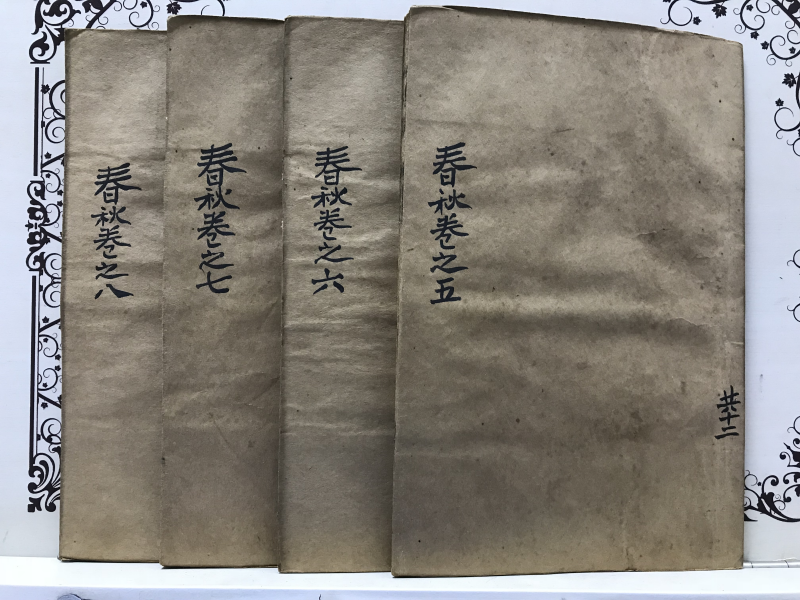 春秋卷之五
共十二
春秋卷之六
春秋卷之七
春秋卷之八